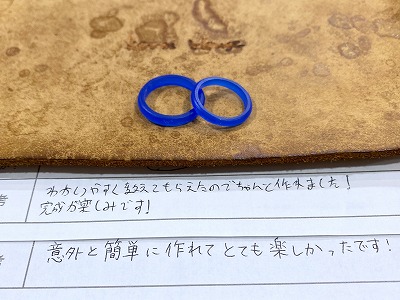 わかりやすく教えてもらえたのでちゃんと作れました!
完成が楽しみです!
考
意外と簡単に作れてとても楽しかったです!